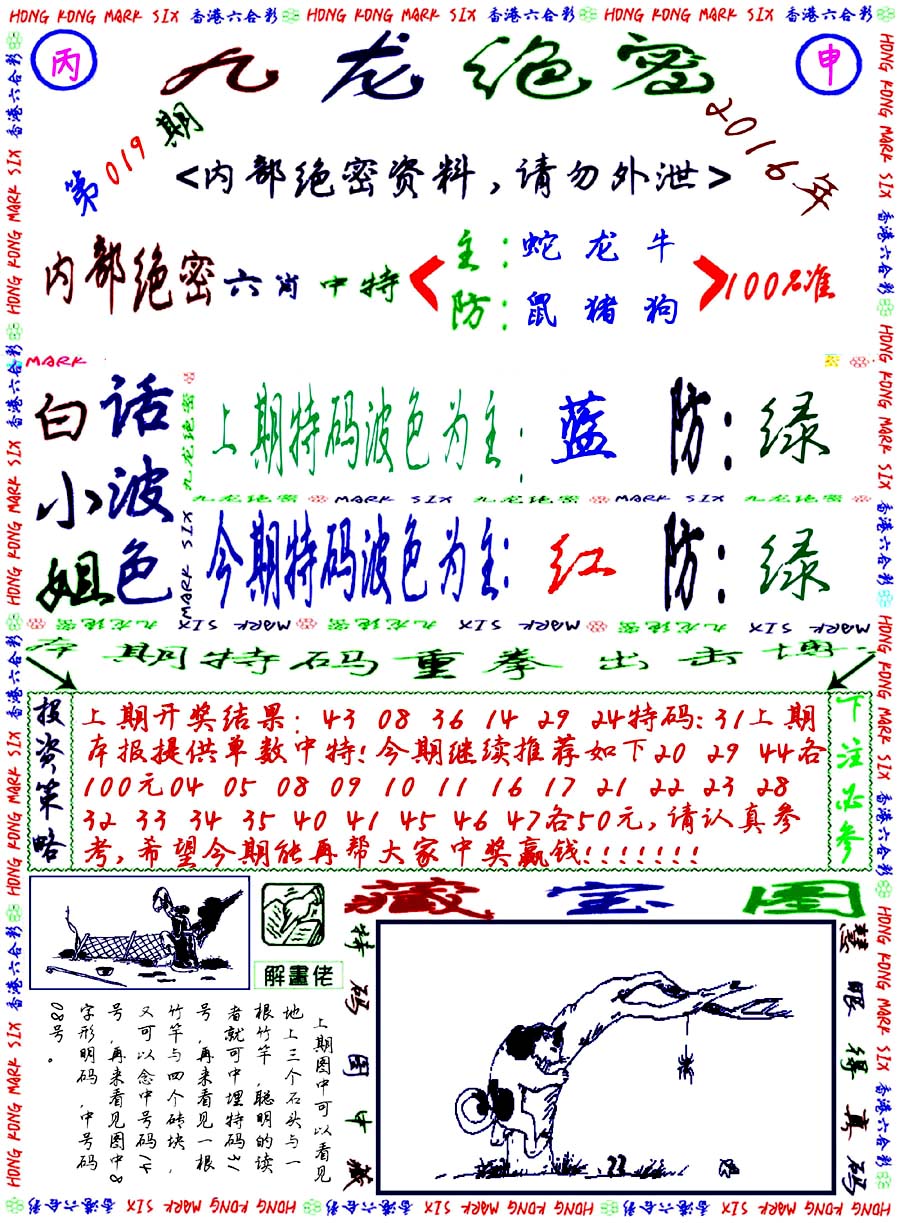 HONG KONG MARK SIX 香港六合彩 HONG KONG MARK SIX 香港六合彩 HONG KONG MARK SIX 香港六合彩
丙
九龙绝密
申
第019期
2016年
<内部绝密资料,请勿外泄>
内部绝密六肖中特
主:蛇龙牛
防:鼠猪狗
100%准
MARK
白话
小波
姐色
九龙绝密
MARK SIX
上期特码波色为主:蓝 防:绿
九龙绝密 MARK SIX 九龙绝密 MARK SIX 九龙绝密
今期特码波色为主:红 防:绿
九龙绝密 MARK SIX 九龙绝密 MARK SIX 九龙绝密 MARK SIX
本期特码重拳出击博
投资策略
上期开奖结果:43 08 36 14 29 24特码:31上期
本报提供单数中特!今期继续推荐如下20 29 44各
100元04 05 08 09 10 11 16 17 21 22 23 28
32 33 34 35 40 41 45 46 47各50元,请认真参
考,希望今期能再帮大家中奖赢钱!!!!!!!
下注必参
解畫佬
藏宝图
特码图中藏
慧眼得真码
上期图中可以看见
地上三个石头与一
根竹竿,聪明的读
者就可中埋特码31
号,再来看见一根
竹竿与四个砖块,
又可以念中号码14
号,再来看见图中8
字形明码,中号码
08号。
HONG KONG MARK SIX 香港六合彩 HONG KONG MARK SIX 香港六合彩 HONG KONG MARK SIX 香港六合彩 HONG KONG MARK SIX 香港六合彩
HONG KONG MARK SIX 香港六合彩 HONG KONG MARK SIX 香港六合彩 HONG KONG MARK SIX 香港六合彩 HONG KONG MARK SIX 香港六合彩
HONG KONG MARK SIX 香港六合彩 HONG KONG MARK SIX 香港六合彩 HONG KONG MARK SIX 香港六合彩